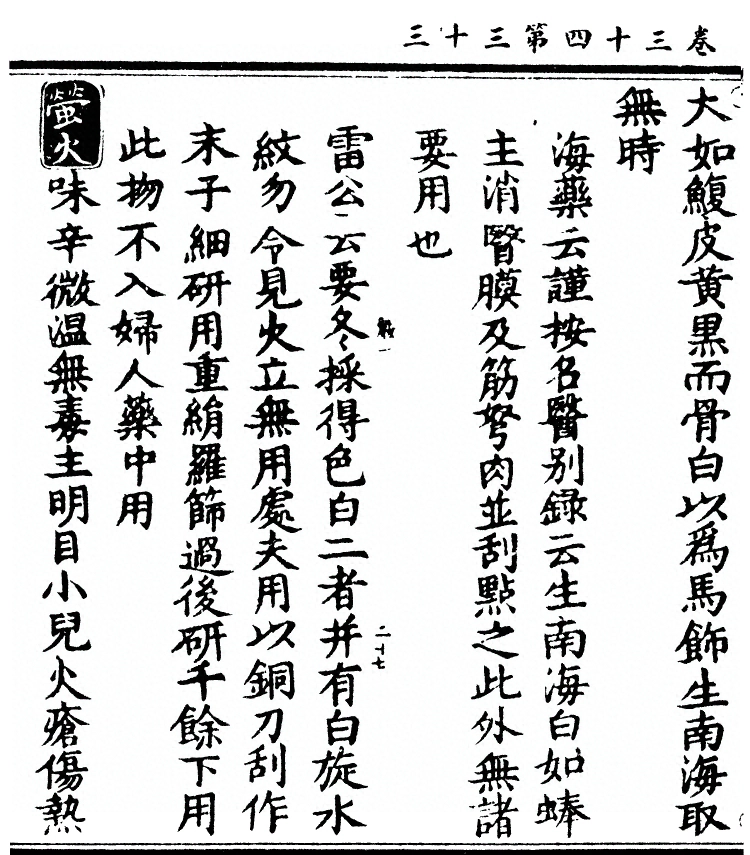 卷三十四第三十三
大如鰒皮黄黒而骨白以爲馬飾生南海取
無時
海藥云謹按名醫别録云生南海白如蜯
主消瞖膜及筋弩肉並刮點之此外無諸
要用也
雷公云要冬採得色白二者并有白旋水
二十七
紋勿令見火立無用處夫用以銅刀刮作
末子細研用重絹羅篩過後研千餘下用
此物不入婦人藥中用
螢火味辛微温無毒主明目小兒火瘡傷熱